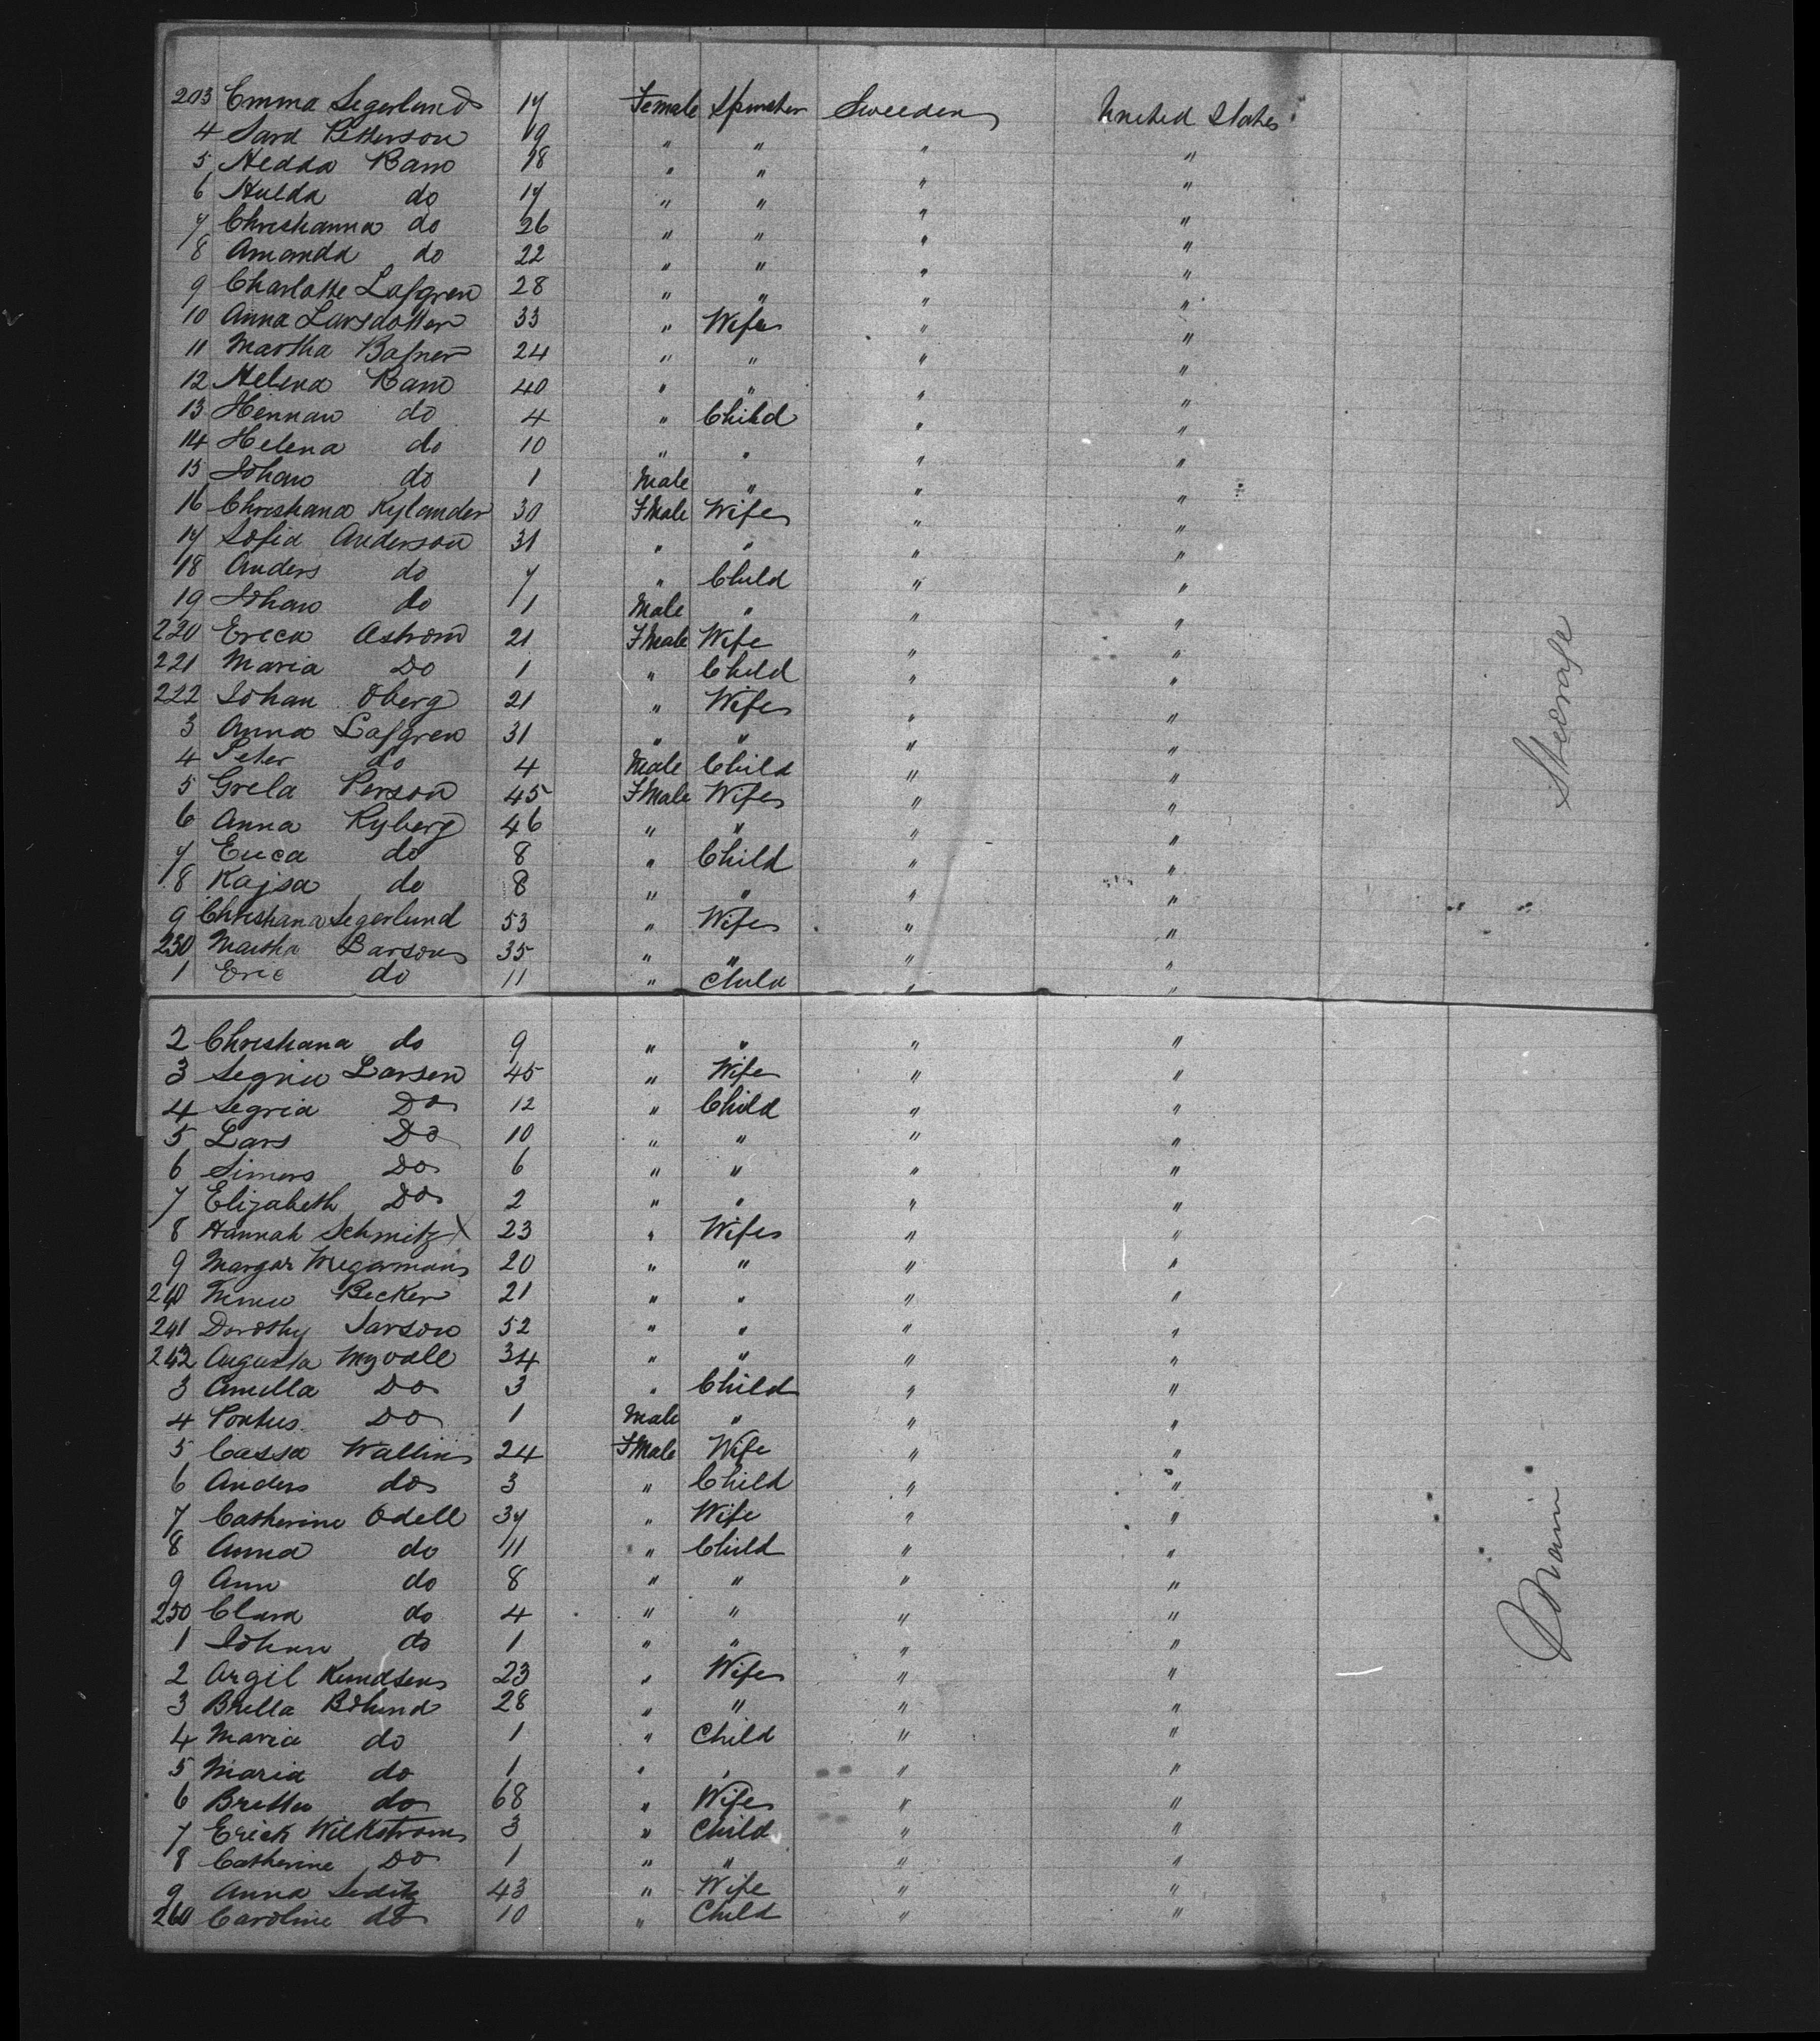 203 Emma Segerlund 17 Female Spinster Sweeden United States
4 Sara Petterson 19 " " " "
5 Hedda Ram 18 " " " "
6 Hulda do 17 " " " "
7 Christianna do 26 " " " "
8 Amanda do 22 " " " "
9 Charlotte Lafgren 28 " " " "
10 Anna Larsdotter 33 " Wife " "
11 Martha Bafner 24 " " " "
12 Helena Ram 40 " " " "
13 Hennan do 4 " Child " "
14 Helena do 10 " " " "
15 Johan do 1 Male " " "
16 Christiana Rylander 30 FMale Wife " "
17 Sofia Anderson 31 " " " "
18 Anders do 7 " Child " "
19 Johan do 1 Male " " "
220 Erica Astrom 21 FMale Wife " "
221 Maria Do 1 " Child " "
222 Johan Oberg 21 " Wife " "
3 Anna Lafgren 31 " " " "
4 Peter do 4 Male Child " "
5 Greta Person 45 FMale Wife " "
6 Anna Ryberg 46 " " " "
7 Erica do 8 " Child " "
8 Kajsa do 8 " " " "
9 Christiana Segerlund 53 " Wife " "
230 Martha Larson 35 " " " "
1 Eric do 11 " Child " "
Steerage
2 Christiana do 9 " " " "
3 Segrid Larsen 45 " Wife " "
4 Segrid Do 12 " Child " "
5 Lars Do 10 " " " "
6 Simons Do 6 " " " "
7 Elizabeth Do 2 " " " "
8 Hannah Schmitz X 23 " Wife " "
9 Margar 20 " " " "
240 Becker 21 " " " "
241 Dorothy Larson 52 " " " "
242 Augusta Myvall 34 " " " "
3 Amella Do 3 " Child " "
4 Pontus Do 1 Male " " "
5 Cassa Wallin 24 FMale Wife " "
6 Anders do 3 " Child " "
7 Catherine Odell 37 " Wife " "
8 Anna do 11 " Child " "
9 Ann do 8 " " " "
250 Clara do 4 " " " "
1 Johan do 1 " " " "
2 Argil Kundsen 23 " Wife " "
3 Brella Bohund 28 " " " "
4 Maria do 1 " Child " "
5 Maria do 1 " " " "
6 Britta do 68 " Wife " "
7 Erick Wilkstrom 3 " Child " "
8 Catherine Do 1 " " " "
9 Anna 43 " Wife " "
260 Caroline do 10 " Child " "